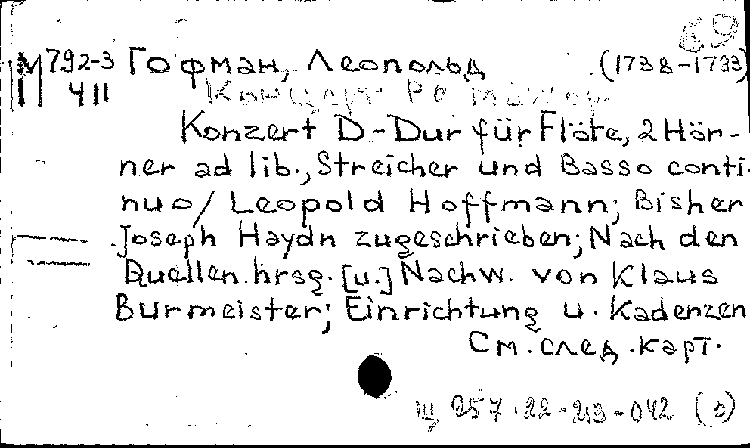 69
М 792-3 Гофман, Леопольд (1738-1793)
Ч 11 Концерт Ре мажор
Konzert D-Dur für Flöte, 2 Hör-
ner ad lib., Streicher und Basso conti-
nuo / Leopold Hoffmann; Bisher
Joseph Haydn zugeschrieben; Nach den
Quellen hrsg. [u.] Nachw. von Klaus
Burmeister; Einrichtung u. Kadenzen
См. след. карт.
Щ 257-22-213-042 (5)